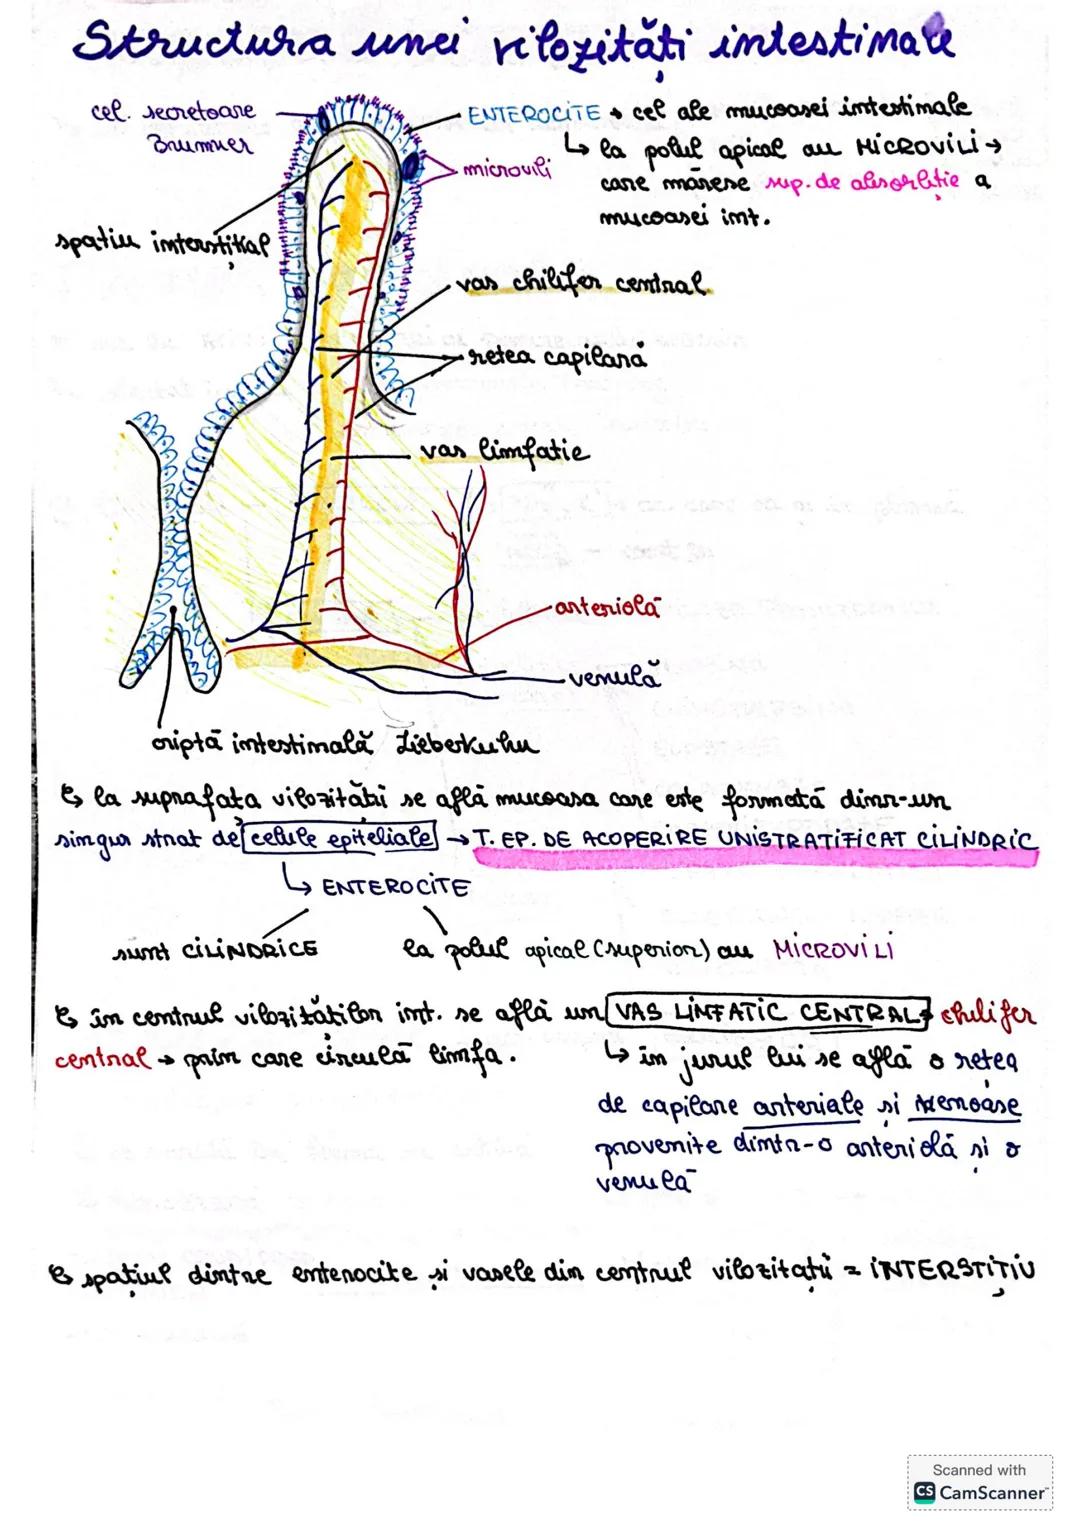 Structura unei vilozități intestinale
cel. secretoare
Brunner
ENTEROCITE → cel ale mucoasei intestinale
↳ la polul apical au MICROVILI →
care măresc sup. de absorbție a
mucoasei int.
microvili
spațiu interstițial
vas chilifer central
retea capilară
vas limfatic
arteriolă
venulă
criptă intestinală Lieberkuhn
↳ la suprafața vilozității se află mucoasa care este formată dintr-un
singur strat de celule epiteliale → T. EP. DE ACOPERIRE UNISTRATIFICAT CILINDRIC
↳ ENTEROCITE
sunt CILINDRICE
la polul apical (superior) au MICROVILI
↳ în centrul vilozităților int. se află un VAS LINFATIC CENTRAL → chilifer
central → prin care circulă limfa.
↳ în jurul lui se află o rețea
de capilare arteriale și venoase
provenite dintr-o arteriolă și o
venulă
↳ spațiul dintre enterocite și vasele din centrul vilozității = INTERSTIȚIU
Scanned with
CS CamScanner